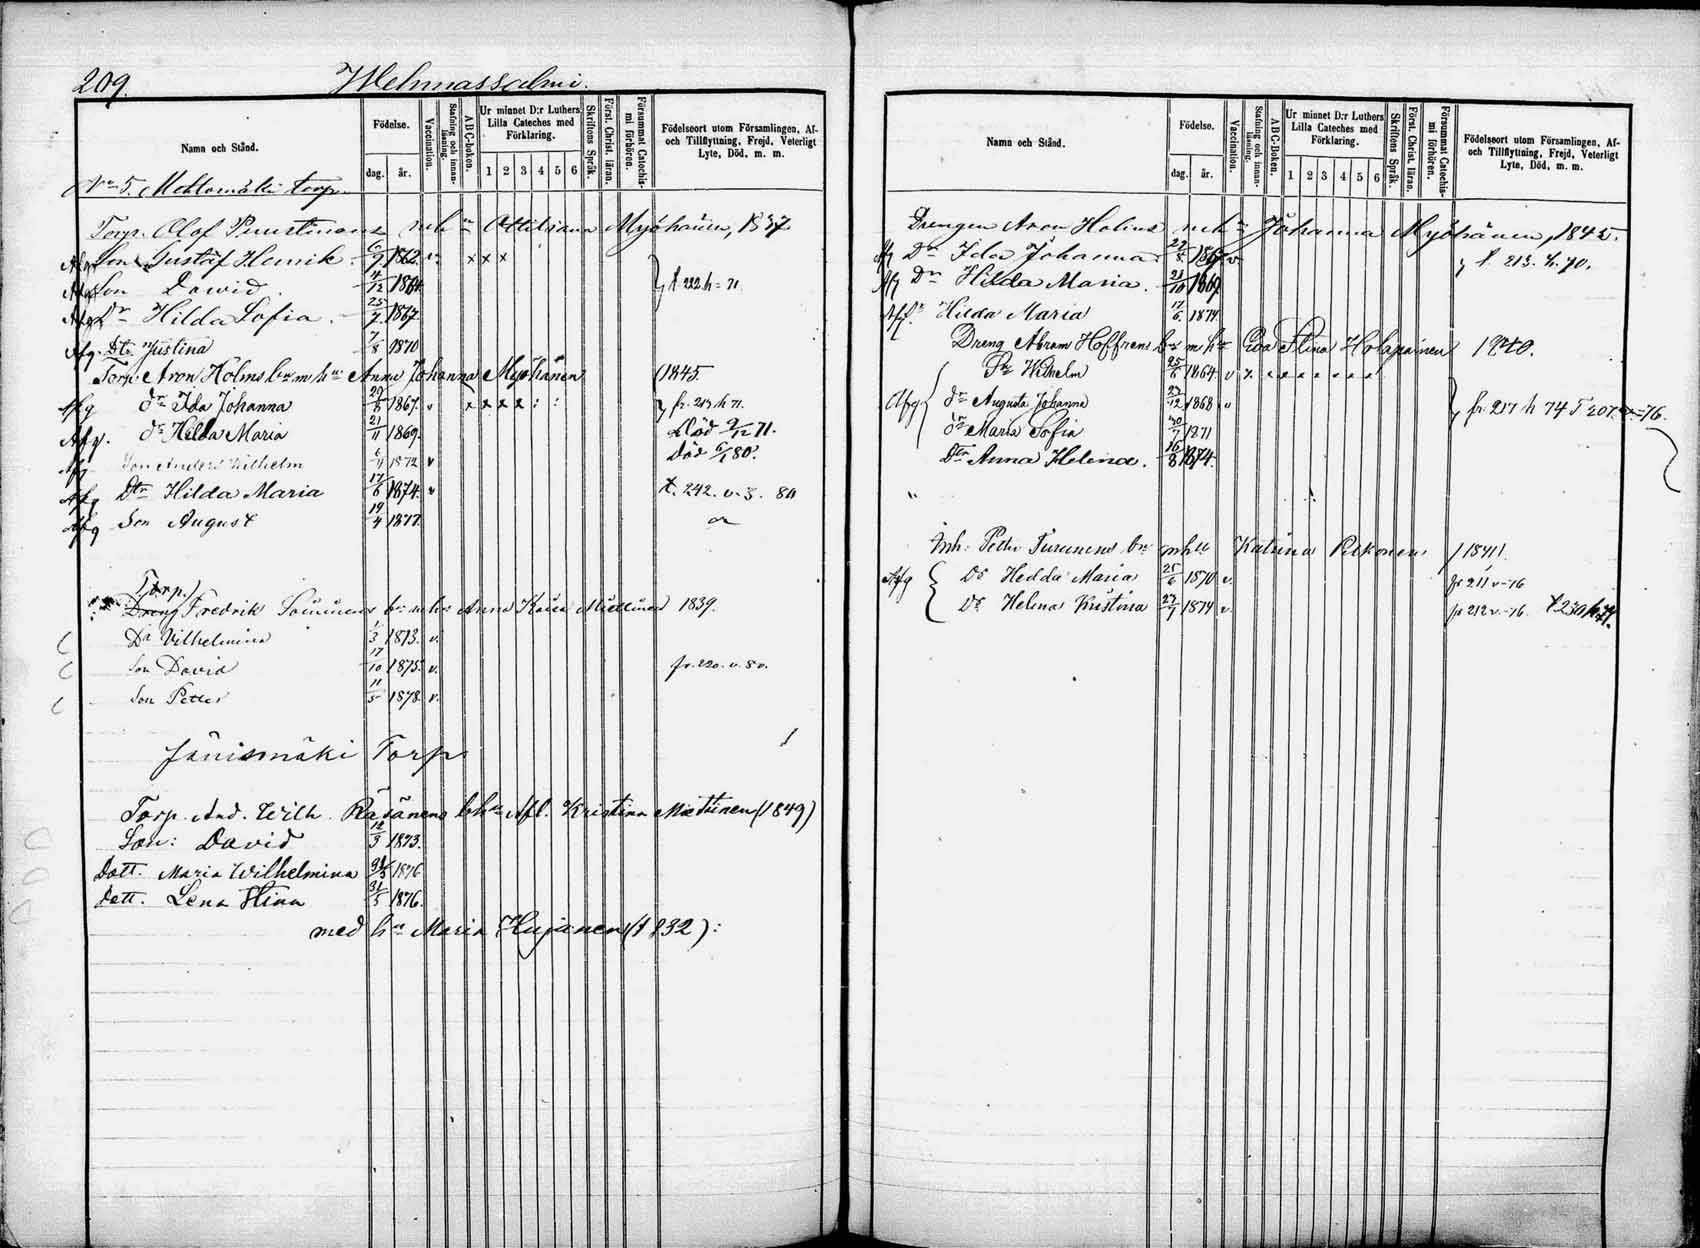 209. Wehmassalmi.
Namn och Stånd.
Födelse.
dag. år.
Vaccination.
Stafning och innanläsning.
ABC-boken.
Ur minnet D:r Luthers Lilla Cateches med Förklaring.
1 2 3 4 5 6
Skriftens Språk.
Först. Christ. läran.
Försummat Catechismi förhören.
Födelseort utom Församlingen, Af- och Tillflyttning, Frejd, Veterligt Lyte, Död, m. m.
No 5. Mehtomäki torp.
Torp. Olof Puustinens mhu Ottiliana Myöhänen, 1837
Afg Son Gustaf Henrik 6/9 1862. v x x x
Afg Son Dawid. 4/12 1864 } t 222 h = 71
Afg Dr Hilda Sofia. 25/7 1867
Afg. Dtr Justina 7/8 1870
Torp. Aron Holms bn m hu Anna Johanna Myöhänen (1845.
Afg dr Ida Johanna 29/8 1867. v x x x x : : } fr. 213 h 71.
Afg. dr Hilda Maria 21/11 1869. Död 9/12 71.
Afg Son Anders Wilhelm 6/4 1872 v Död 6/1 80.
Afg Dtr Hilda Maria 17/6 1874. v t. 242. v. 3. 80
Afg Son August 19/4 1877
Torp.
Dreng Fredrik bn mhu Anna Kaisa Miettinen 1839.
Dr Vilhelmina 1/3 1873. v.
Son David 17/10 1875. v. fr. 220. v. 80.
Son Petter 11/5 1878. v.
Jänismäki Torp
Torp. And. Wilh. Räsänens bhu Afl. Kristina Miettinen (1849)
Son: David 12/3 1873.
Dött. Maria Wilhelmina 1876
Dött. Lena Stina 31/5 1876.
med hu Maria Hujanen (1832):
Namn och Stånd.
Födelse.
dag. år.
Vaccination.
Stafning och innanläsning.
ABC-Boken.
Ur minnet D:r Luthers Lilla Cateches med Förklaring.
1 2 3 4 5 6
Skriftens Språk.
Först. Christ. läran.
Försummat Catechismi förhören.
Födelseort utom Församlingen, Af- och Tillflyttning, Frejd, Veterligt Lyte, Död, m. m.
Drengen Aron Holms mhu Johanna Myöhänen, 1845.
Afg Dr Ida Johanna 29/8 1867 v } t. 213. h. 70.
Afg Dr Hilda Maria. 21/10 1869
Afg. Dr Hilda Maria 17/6 1874
Dreng Abram Hoffrens bn m hu Eva Stina Holopainen 1840.
Afg { Son Wilhelm 25/6 1864 v x x x x x x x
dr Augusta Johanna 23/12 1868 v } fr. 217 h 74 T 207. v=76.
dr Maria Sofia 30/7 1871
Dtr Anna Helena. 16/8 1874.
Inh. Petter Turunens bn mhu Katrina Pitkonen (1841)
Afg { Dr Hedda Maria 25/6 1870 v. fr 211 v-76
Dr Helena Kristina 27/7 1874 v fr 212 v-76. t 230 h 77.